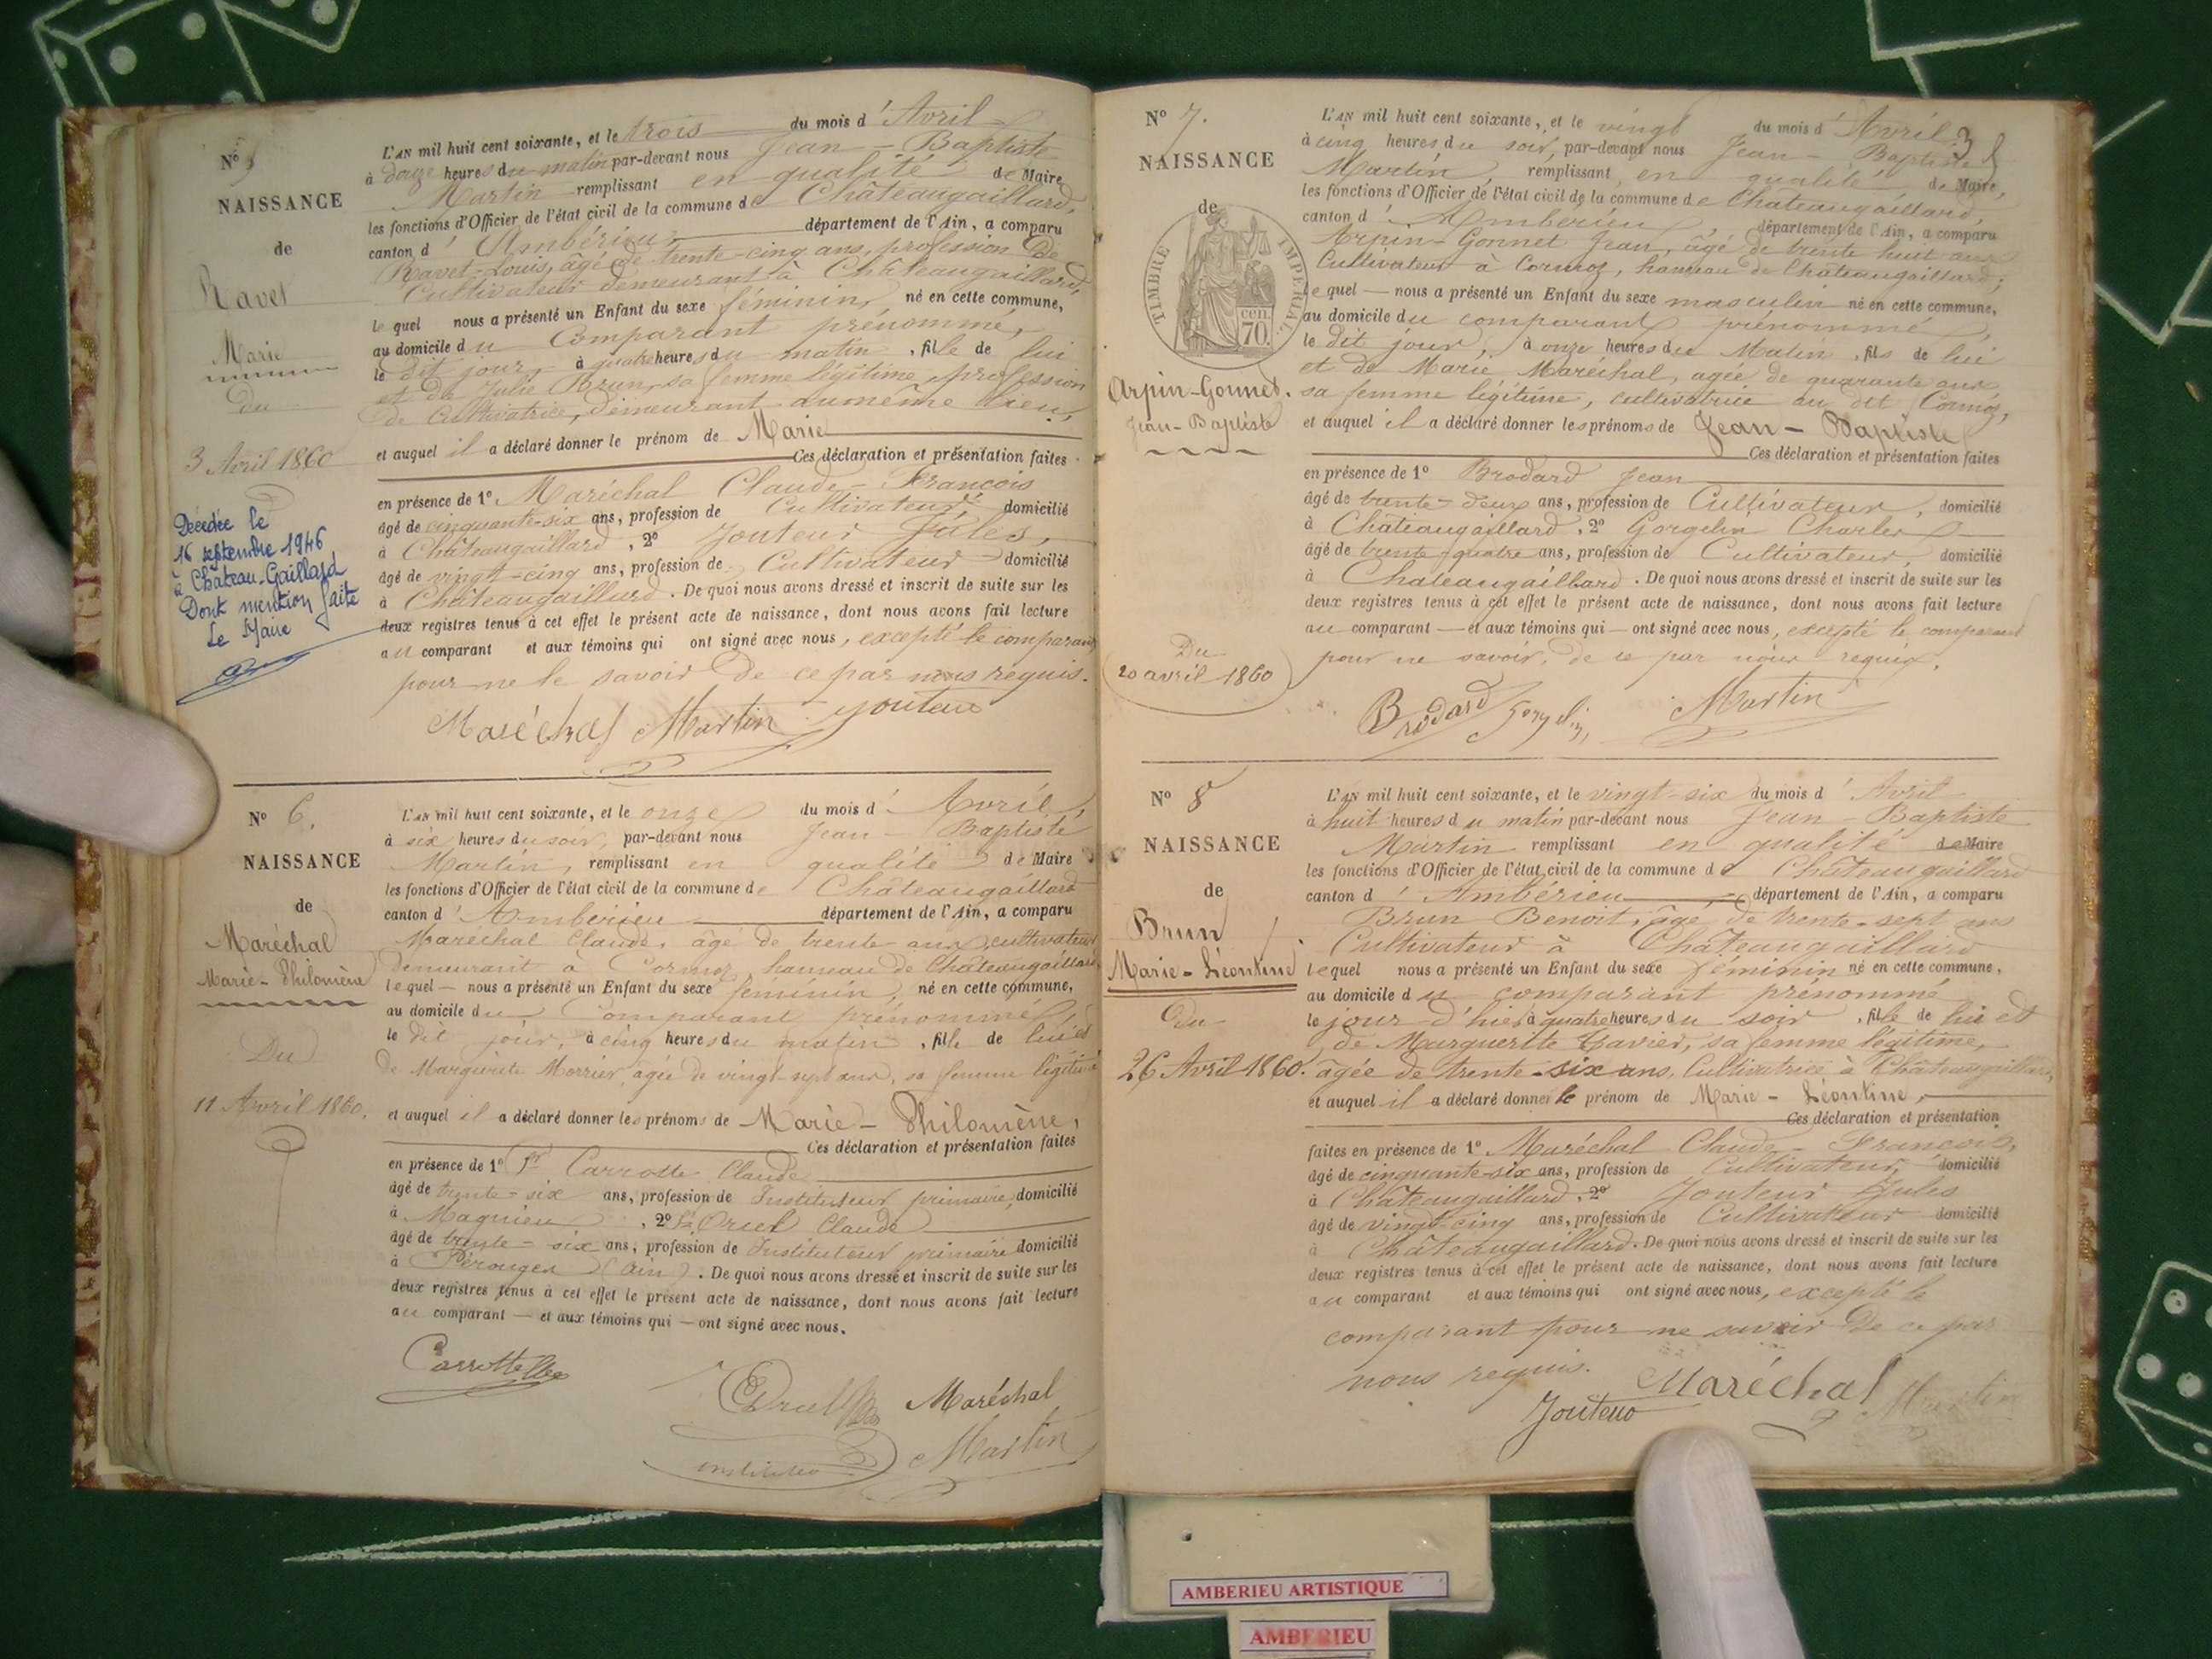 N° 5
NAISSANCE
de
Ravet
Marie
du
3 Avril 1860
Décédée le
16 septembre 1946
à Château-Gaillard
Dont mention faite
Le Maire
L'AN mil huit cent soixante, et le trois du mois d'Avril
à douze heures du matin par-devant nous Jean-Baptiste
Martin remplissant en qualité de Maire
les fonctions d'Officier de l'état civil de la commune de Châteaugaillard,
canton d'Ambérieu département de l'Ain, a comparu
Ravet Louis, âgé de trente-cinq ans, profession de
Cultivateur demeurant à Châteaugaillard,
lequel nous a présenté un Enfant du sexe féminin, né en cette commune,
au domicile du Comparant prénommé,
le dit jour, à quatre heures du matin, fille de lui
et de Julie Brun, sa femme légitime, profession
de Cultivatrice, demeurant au même lieu,
et auquel il a déclaré donner le prénom de Marie
Ces déclaration et présentation faites
en présence de 1° Maréchal Claude-François
âgé de cinquante-six ans, profession de Cultivateur, domicilié
à Châteaugaillard, 2° Jouteur Jules,
âgé de vingt-cinq ans, profession de Cultivateur domicilié
à Châteaugaillard. De quoi nous avons dressé et inscrit de suite sur les
deux registres tenus à cet effet le présent acte de naissance, dont nous avons fait lecture
au comparant et aux témoins qui ont signé avec nous, excepté le comparant
pour ne le savoir de ce par nous requis.
Maréchal Martin Jouteur
N° 6.
NAISSANCE
de
Maréchal
Marie-Philomène
Du
11 Avril 1860.
L'AN mil huit cent soixante, et le onze du mois d'Avril,
à six heures du soir, par-devant nous Jean-Baptiste
Martin, remplissant en qualité de Maire
les fonctions d'Officier de l'état civil de la commune de Châteaugaillard
canton d'Ambérieu département de l'Ain, a comparu
Maréchal Claude, âgé de trente ans, cultivateur
demeurant à Cormoz, hameau de Châteaugaillard,
lequel — nous a présenté un Enfant du sexe féminin, né en cette commune,
au domicile du Comparant prénommé,
le dit jour, à cinq heures du matin, fille de lui et
de Marguerite Morrier, agée de vingt-sept ans, sa femme légitime
et auquel il a déclaré donner les prénoms de Marie-Philomène,
Ces déclaration et présentation faites
en présence de 1° Sr Carrotte Claude
âgé de trente-six ans, profession de Instituteur primaire, domicilié
à Magnieu, 2° Sr Orcel Claude
âgé de trente-six ans, profession de Instituteur primaire domicilié
à Pérouges (Ain). De quoi nous avons dressé et inscrit de suite sur les
deux registres tenus à cet effet le présent acte de naissance, dont nous avons fait lecture
au comparant — et aux témoins qui — ont signé avec nous.
Carrotte
Maréchal
Martin
N° 7.
NAISSANCE
de
TIMBRE IMPÉRIAL
70 cen
Arpin-Gonnet.
Jean-Baptiste
Du
20 avril 1860
L'AN mil huit cent soixante, et le vingt du mois d'Avril,
à cinq heures du soir, par-devant nous Jean-Baptiste
Martin, remplissant en qualité de Maire,
les fonctions d'Officier de l'état civil de la commune de Châteaugaillard,
canton d'Ambérieu département de l'Ain, a comparu
Arpin-Gonnet Jean, âgé de trente huit ans
Cultivateur à Cormoz, hameau de Châteaugaillard;
lequel — nous a présenté un Enfant du sexe masculin né en cette commune,
au domicile du comparant prénommé,
le dit jour, à onze heures du Matin, fils de lui
et de Marie Maréchal, agée de quarante ans
sa femme légitime, cultivatrice au dit Cormoz,
et auquel il a déclaré donner les prénoms de Jean-Baptiste
Ces déclaration et présentation faites
en présence de 1° Brodard Jean
âgé de trente-deux ans, profession de Cultivateur, domicilié
à Châteaugaillard, 2° Gorgelin Charles
âgé de trente quatre ans, profession de Cultivateur, domicilié
à Chateaugaillard. De quoi nous avons dressé et inscrit de suite sur les
deux registres tenus à cet effet le présent acte de naissance, dont nous avons fait lecture
au comparant — et aux témoins qui — ont signé avec nous, excepté le comparant
pour ne savoir, de ce par nous requis.
Brodard Gorgelin Martin
N° 8
NAISSANCE
de
Brun
Marie-Léontine
Du
26 Avril 1860.
L'AN mil huit cent soixante, et le vingt-six du mois d'Avril
à huit heures du matin par-devant nous Jean-Baptiste
Martin remplissant en qualité de Maire
les fonctions d'Officier de l'état civil de la commune de Châteaugaillard
canton d'Ambérieu département de l'Ain, a comparu
Brun Benoit, âgé de trente-sept ans
Cultivateur à Châteaugaillard
lequel nous a présenté un Enfant du sexe féminin né en cette commune,
au domicile du comparant prénommé
le jour d'hier à quatre heures du soir, fille de lui et
de Marguerite Gavier, sa femme légitime,
âgée de trente-six ans, Cultivatrice à Châteaugaillard,
et auquel il a déclaré donner le prénom de Marie-Léontine,
Ces déclaration et présentation
faites en présence de 1° Maréchal Claude-François,
âgé de cinquante-six ans, profession de Cultivateur, domicilié
à Châteaugaillard, 2° Jouteur Jules
âgé de vingt-cinq ans, profession de Cultivateur domicilié
à Châteaugaillard. De quoi nous avons dressé et inscrit de suite sur les
deux registres tenus à cet effet le présent acte de naissance, dont nous avons fait lecture
au comparant et aux témoins qui ont signé avec nous, excepté le
comparant pour ne savoir de ce par
nous requis.
Maréchal
Jouteur Martin
AMBERIEU ARTISTIQUE
AMBERIEU